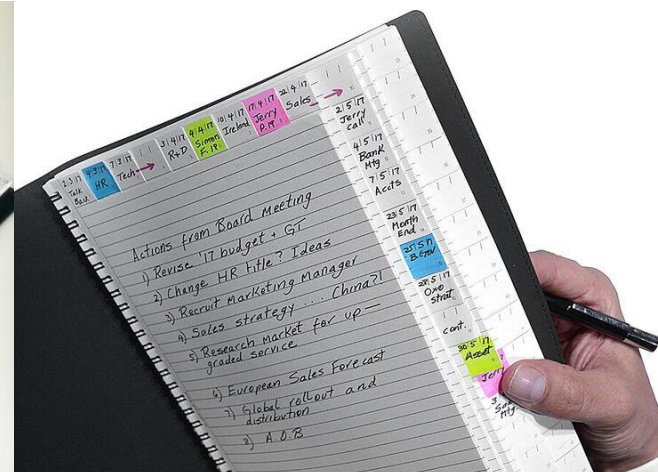 2|3|17
Talk
Back
9|3|17
HR
7|3|17
Tech
3|4|17
R+D
4|4|17
Simon
F. IP.
10|4|17
Ireland
17|4|17
Jerry
P. IP.
22|4|17
Sales
2|5|17
Jerry
Call
4|5|17
Bank
Mtg
7|5|17
Accts
23|5|17
Month
End
25|5|17
28|5|17
Oxo
Strat.
cont.
30|5|17
Asset
Jerry
3
Mtg
Actions from Board Meeting
1) Revise '17 budget + GT
2) Change HR title? Ideas
3) Recruit Marketing Manager
4) Sales strategy ... China?!
5) Research market for up-
graded service
6) European Sales Forecast
7) Global rollout and
distribution
8) A.O.B